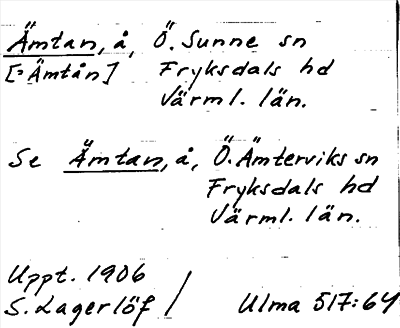 Ämtan, å, Ö. Sunne sn
[= Ämtån] Fryksdals hd
Värml. län.
Se Ämtan, å, Ö. Ämterviks sn
Fryksdals hd
Värml. län.
Uppt. 1906
S. Lagerlöf / Ulma 517:64